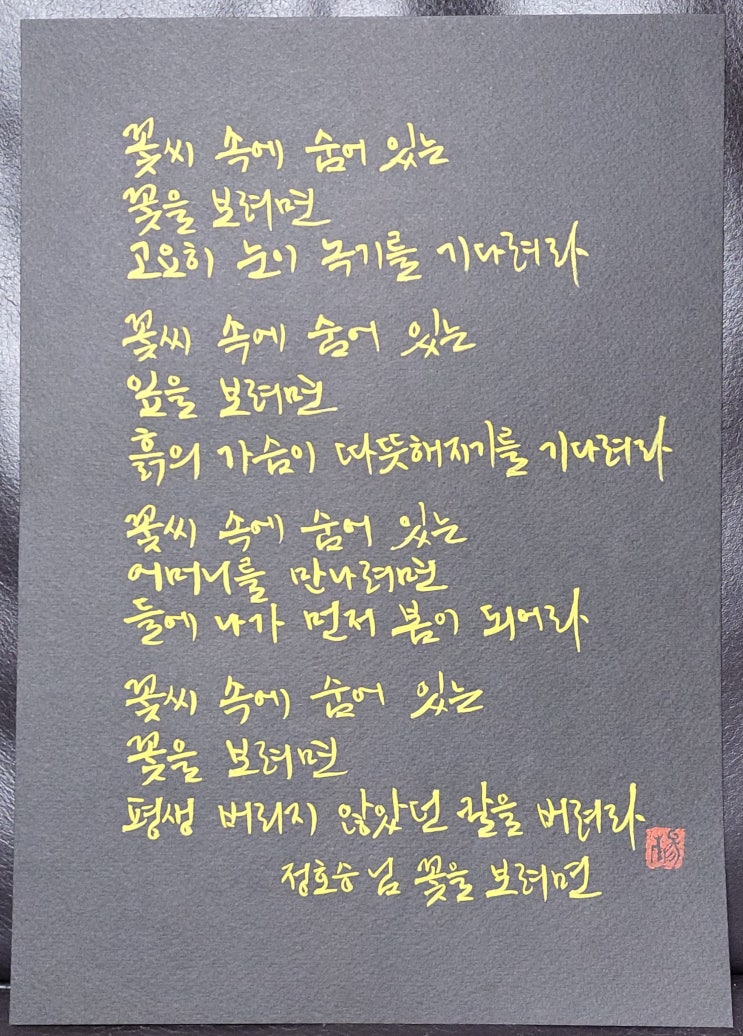 꽃씨 속에 숨어 있는
꽃을 보려면
고요히 눈이 녹기를 기다려라
꽃씨 속에 숨어 있는
잎을 보려면
흙의 가슴이 따뜻해지기를 기다려라
꽃씨 속에 숨어 있는
어머니를 만나려면
들에 나가 먼저 봄이 되어라
꽃씨 속에 숨어 있는
꽃을 보려면
평생 버리지 않았던 칼을 버려라
정호승 님 꽃을 보려면